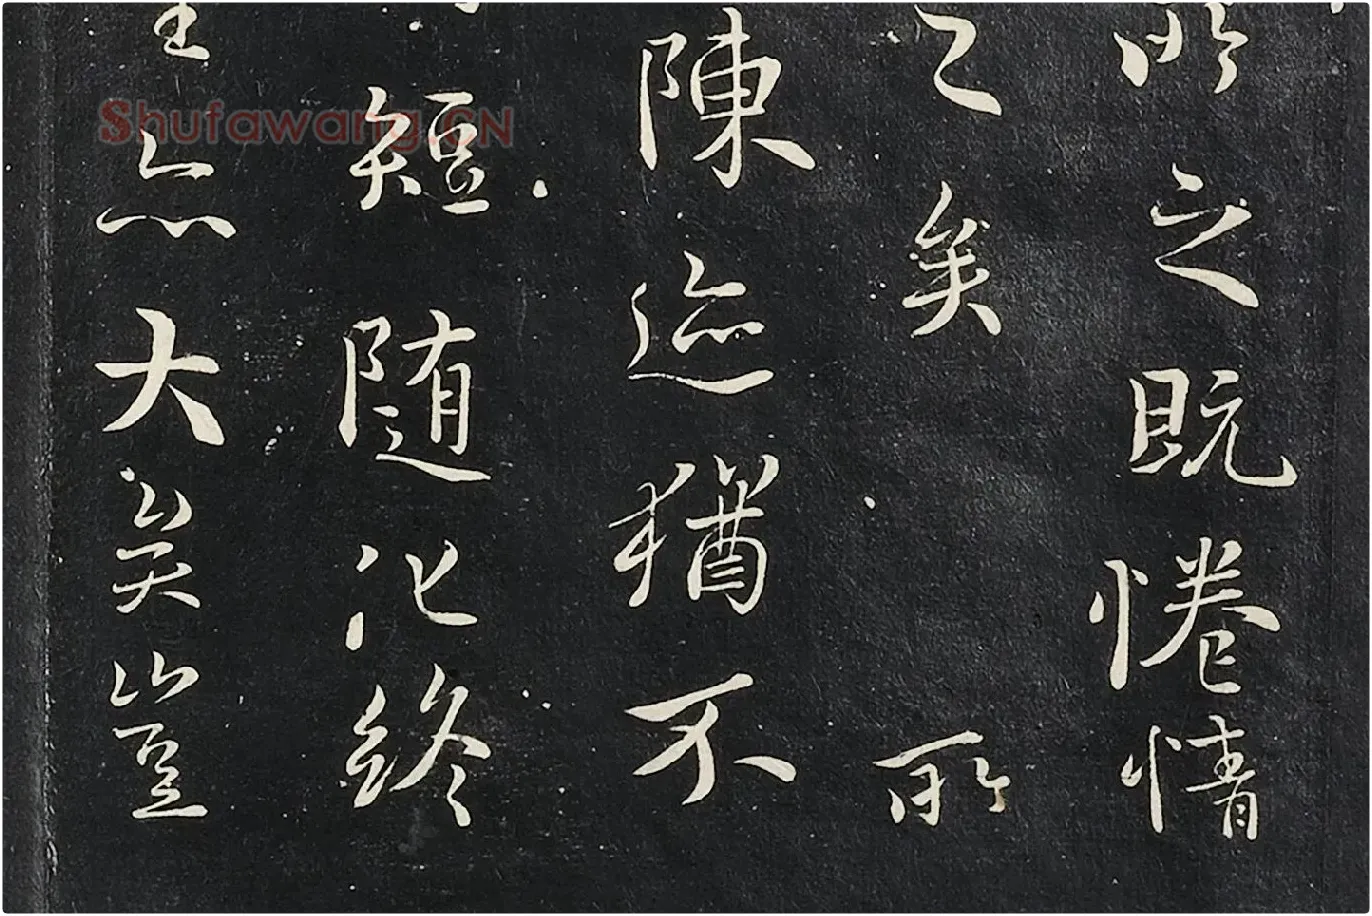 所之既惓情
之矣所
陳迹猶不
短随化終
生亦大矣豈
Shufawang.CN